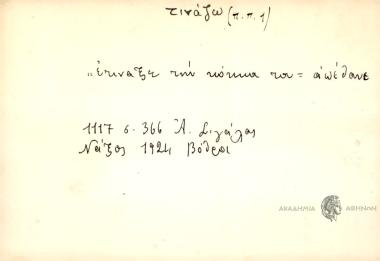 τινάζω (π.π.1)
"ἐτίναξε τὴν κόκκα του = ἀπέθανε
1117 σ. 366 Ἀ. Σιγάλας
Νάξος 1924 Βόθροι
ΑΚΑΔΗΜΙΑ ΑΘΗΝΩΝ